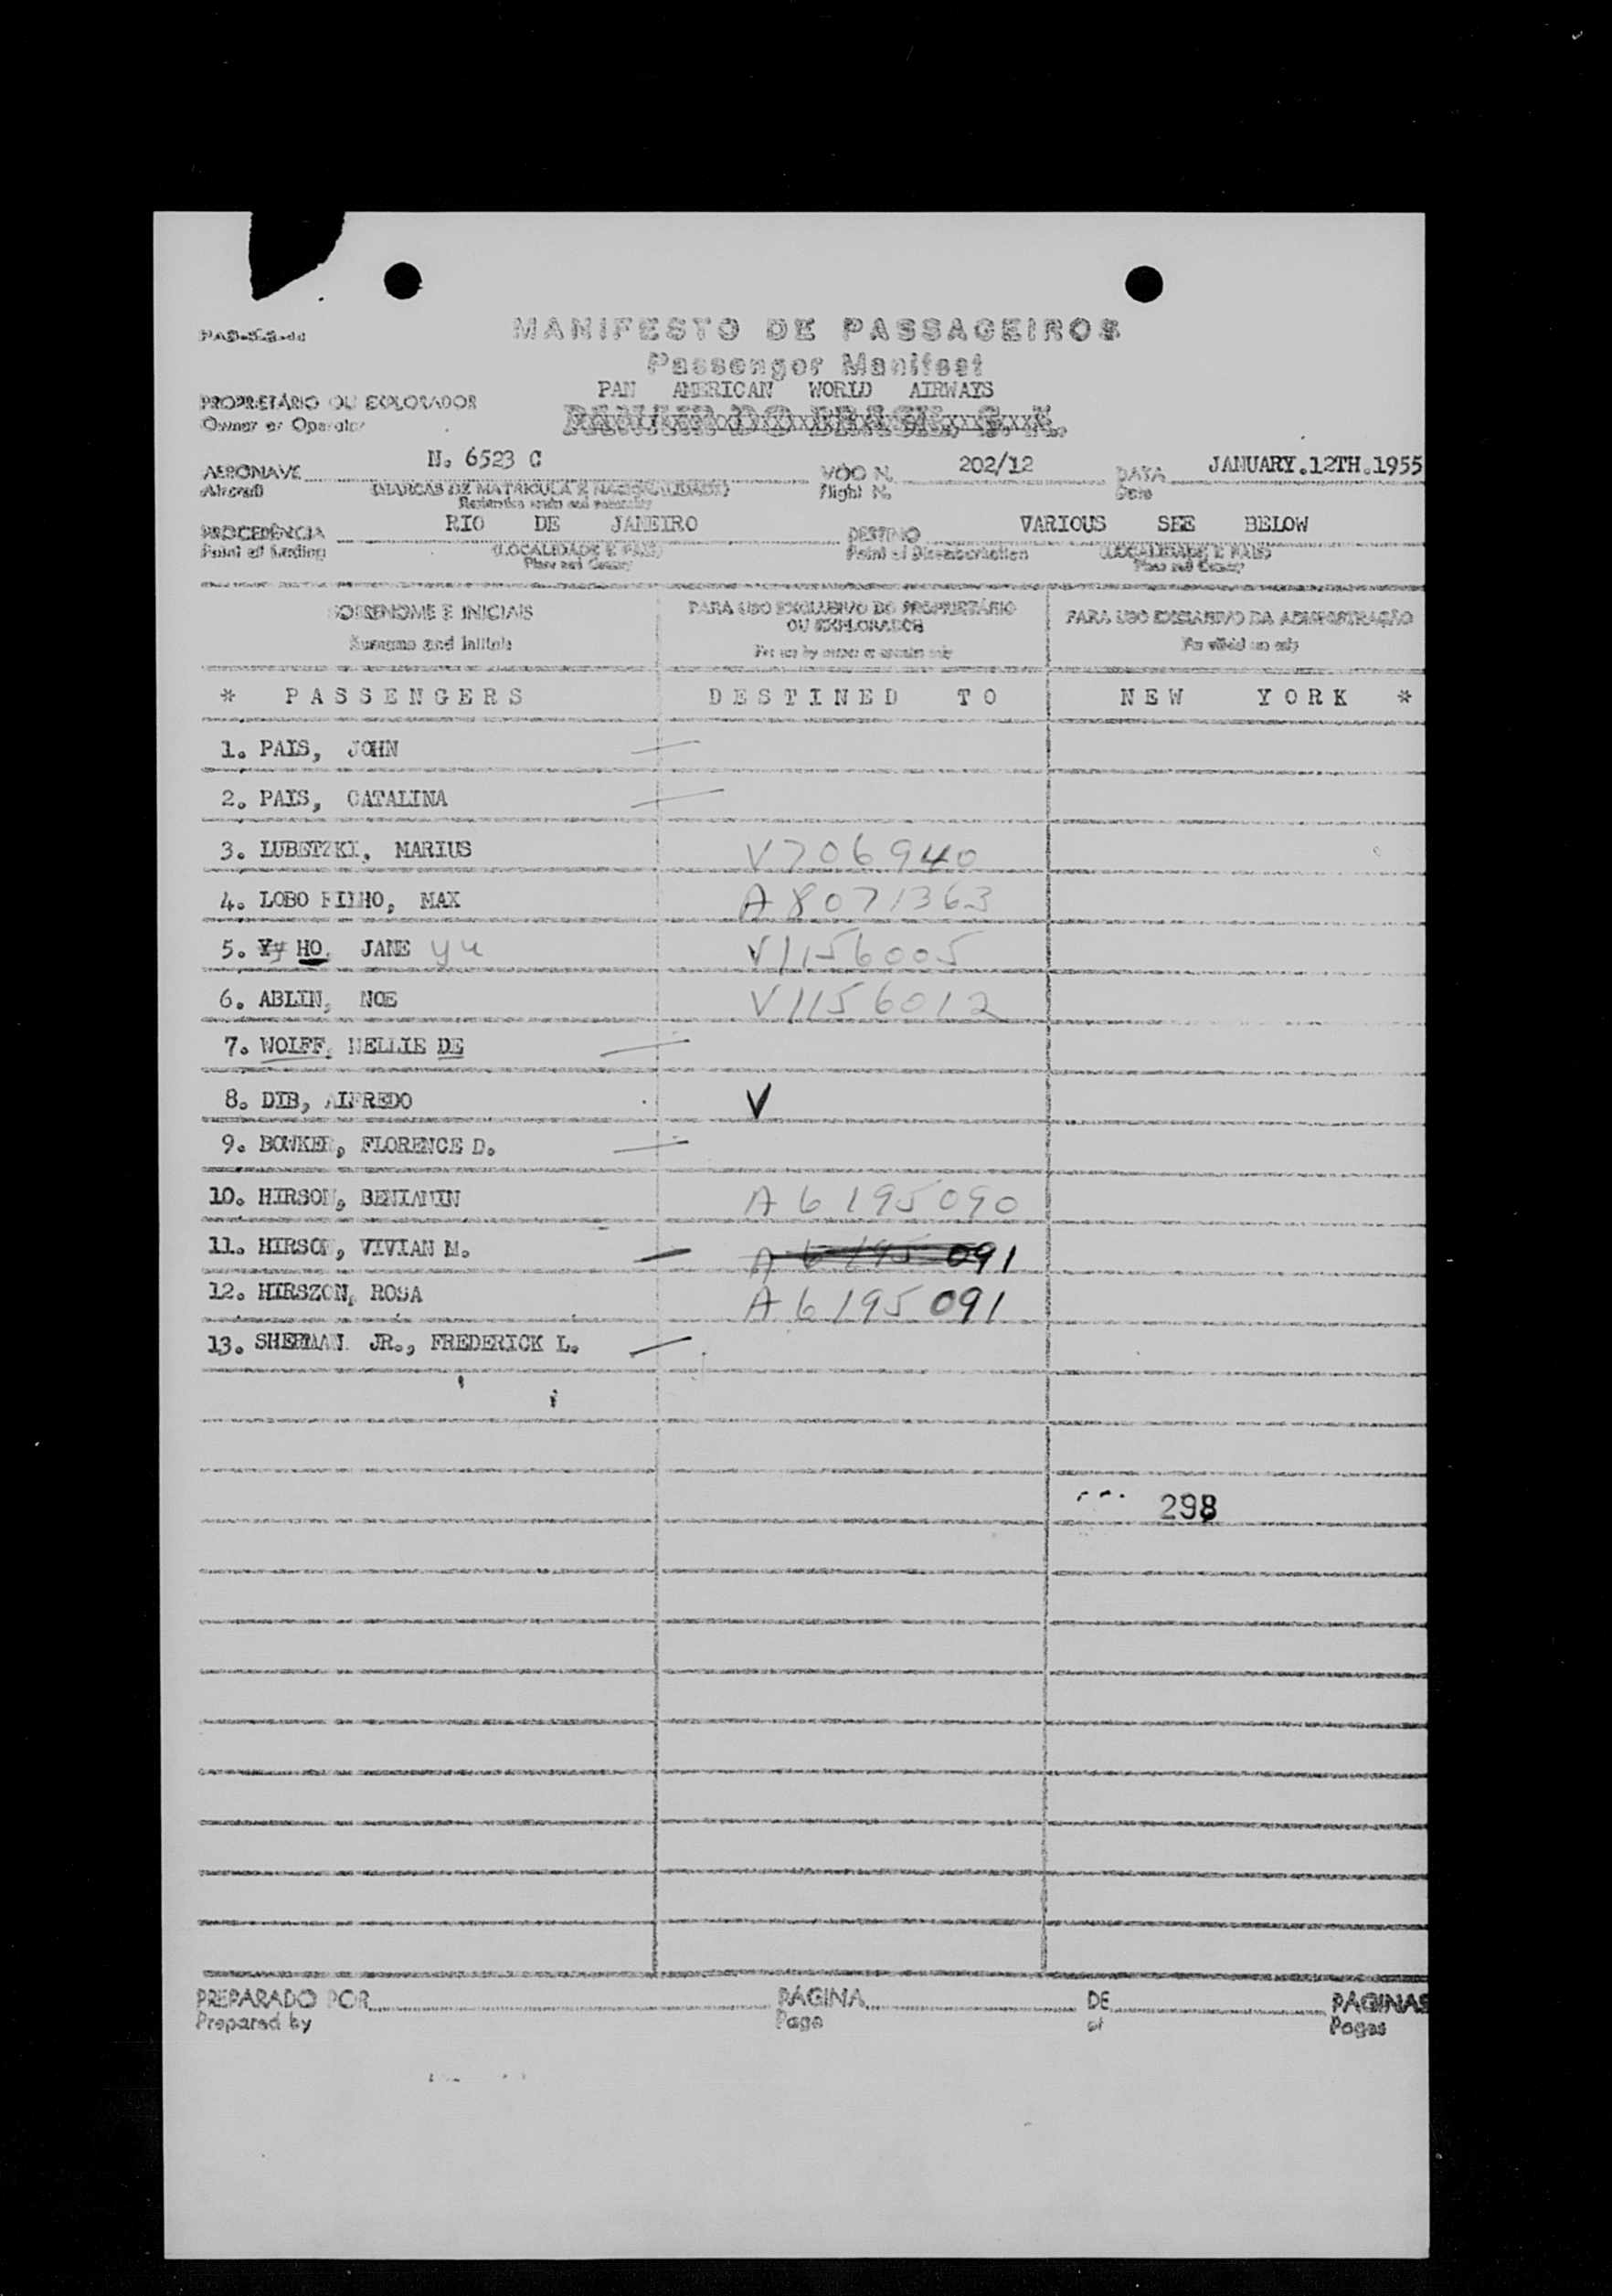 MANIFESTO DE PASSAGEIROS
Passenger Manifest
PAN AMERICAN WORLD AIRWAYS
PROPRIETÁRIO OU EXPLORADOR
Owner or Operator
AERONAVE N. 6523 C VÔO N. 202/12 DATA JANUARY.12TH.1955
Aircraft (MARCAS DE MATRICULA E NACIONALIDADE) Flight N. Date
PROCEDÊNCIA RIO DE JANEIRO DESTINO VARIOUS SEE BELOW
Point of (LOCALIDADE E PAÍS) Point of Disembarkation (LOCALIDADE E PAÍS)
Place and Country Place and Country
SOBRENOME E INICIAIS PARA USO EXCLUSIVO DO PROPRIETÁRIO OU EXPLORADOR PARA USO EXCLUSIVO DA ADMINISTRAÇÃO
Surname and Initials For use by owner or operator only For official use only
* PASSENGERS DESTINED TO NEW YORK *
1. PAIS, JOHN
2. PAIS, CATALINA
3. LUBETZKI, MARIUS V706940
4. LOBO FILHO, MAX A8071363
5. Yy HO, JANE yu V1156005
6. ABLIN, NOE V1156012
7. WOLFF, NELLIE DE
8. DIB, ALFREDO V
9. BOWKER, FLORENCE D.
10. HIRSON, BENIAMIN A6195090
11. HIRSON, VIVIAN M. A 6195 091
12. HIRSZON, ROSA A6195091
13. SHERMAN JR., FREDERICK L.
298
PREPARADO POR PÁGINA DE PÁGINAS
Prepared by Page of Pages